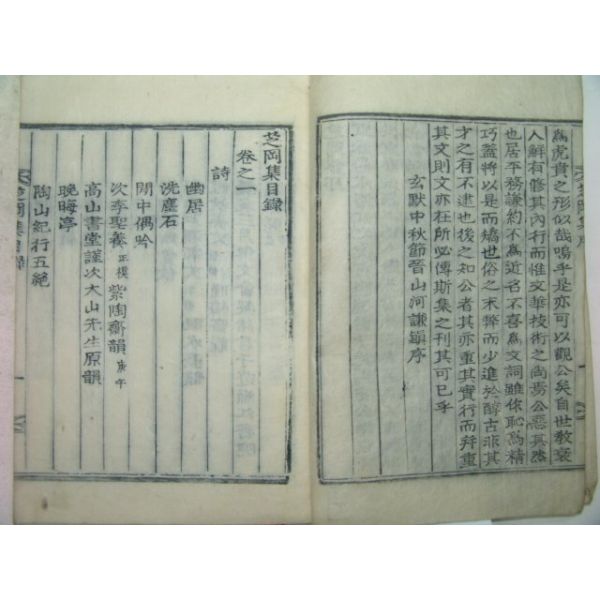 為虎賁之形似哉嗚乎是亦可以觀公矣自世敎衰
人鮮有修其內行而惟文華技術之尚焉公惡其然
也居平務謙約不爲近名不喜爲文詞雖你恥爲精
巧蓋將以是而矯也俗之末弊而少進於醇古非其
才之有不逮也後之知公者其亦重其實行而幷重
其文則文亦在所必傳斯集之刊其可已乎
玄默中秋節晉山河謙鎭序
芝岡集序
芝岡集目錄
卷之一
詩
幽居
洗塵石
閒中偶吟
次李聖養正模紫陶齋韻庚午
高山書堂謹次大山先生原韻
晩晦亭
陶山紀行五絶
芝岡集目錄
一